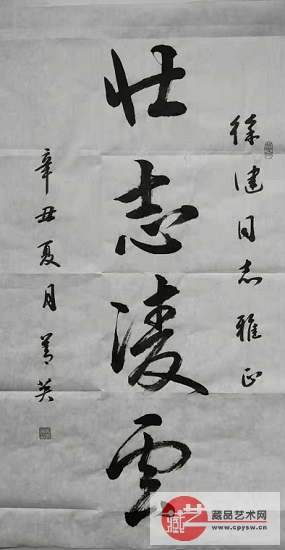 徐建同志雅正
壮志凌云
辛丑夏月菁英
藏艺
藏品艺术网
www.cpysw.cn